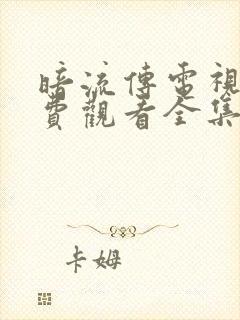 暗流傳電視
費觀看全集
卡姆